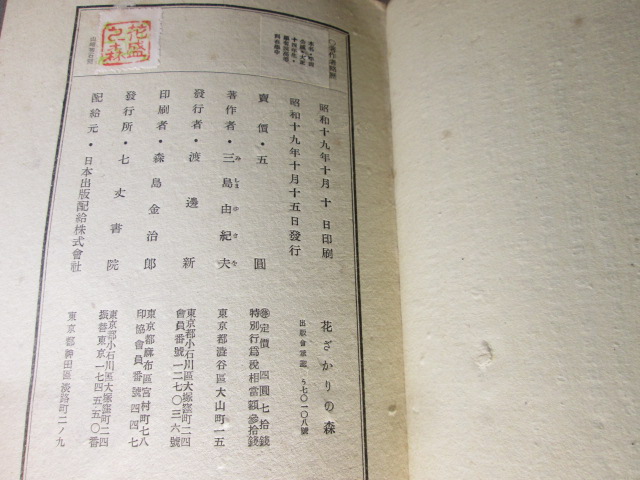 花ざかりの森
出版會承認 ら七〇一〇八號
昭和十九年十月十日印刷
昭和十九年十月十五日發行
賣價・五圓
定價 四圓七拾錢
特別行爲稅相當額參拾錢
著作者・三島由紀夫
みしまゆきを
東京都澁谷區大山町一五
發行者・渡邊新
東京都小石川區大塚窪町二四
會員番號一二七〇三六號
印刷者・森島金治郎
東京都麻布區宮村町七八
印協會員番號四四七
發行所・七丈書院
東京都小石川區大塚窪町二四
振替東京一七四五五〇番
配給元・日本出版配給株式會社
東京都神田區淡路町二ノ九
花盛之森